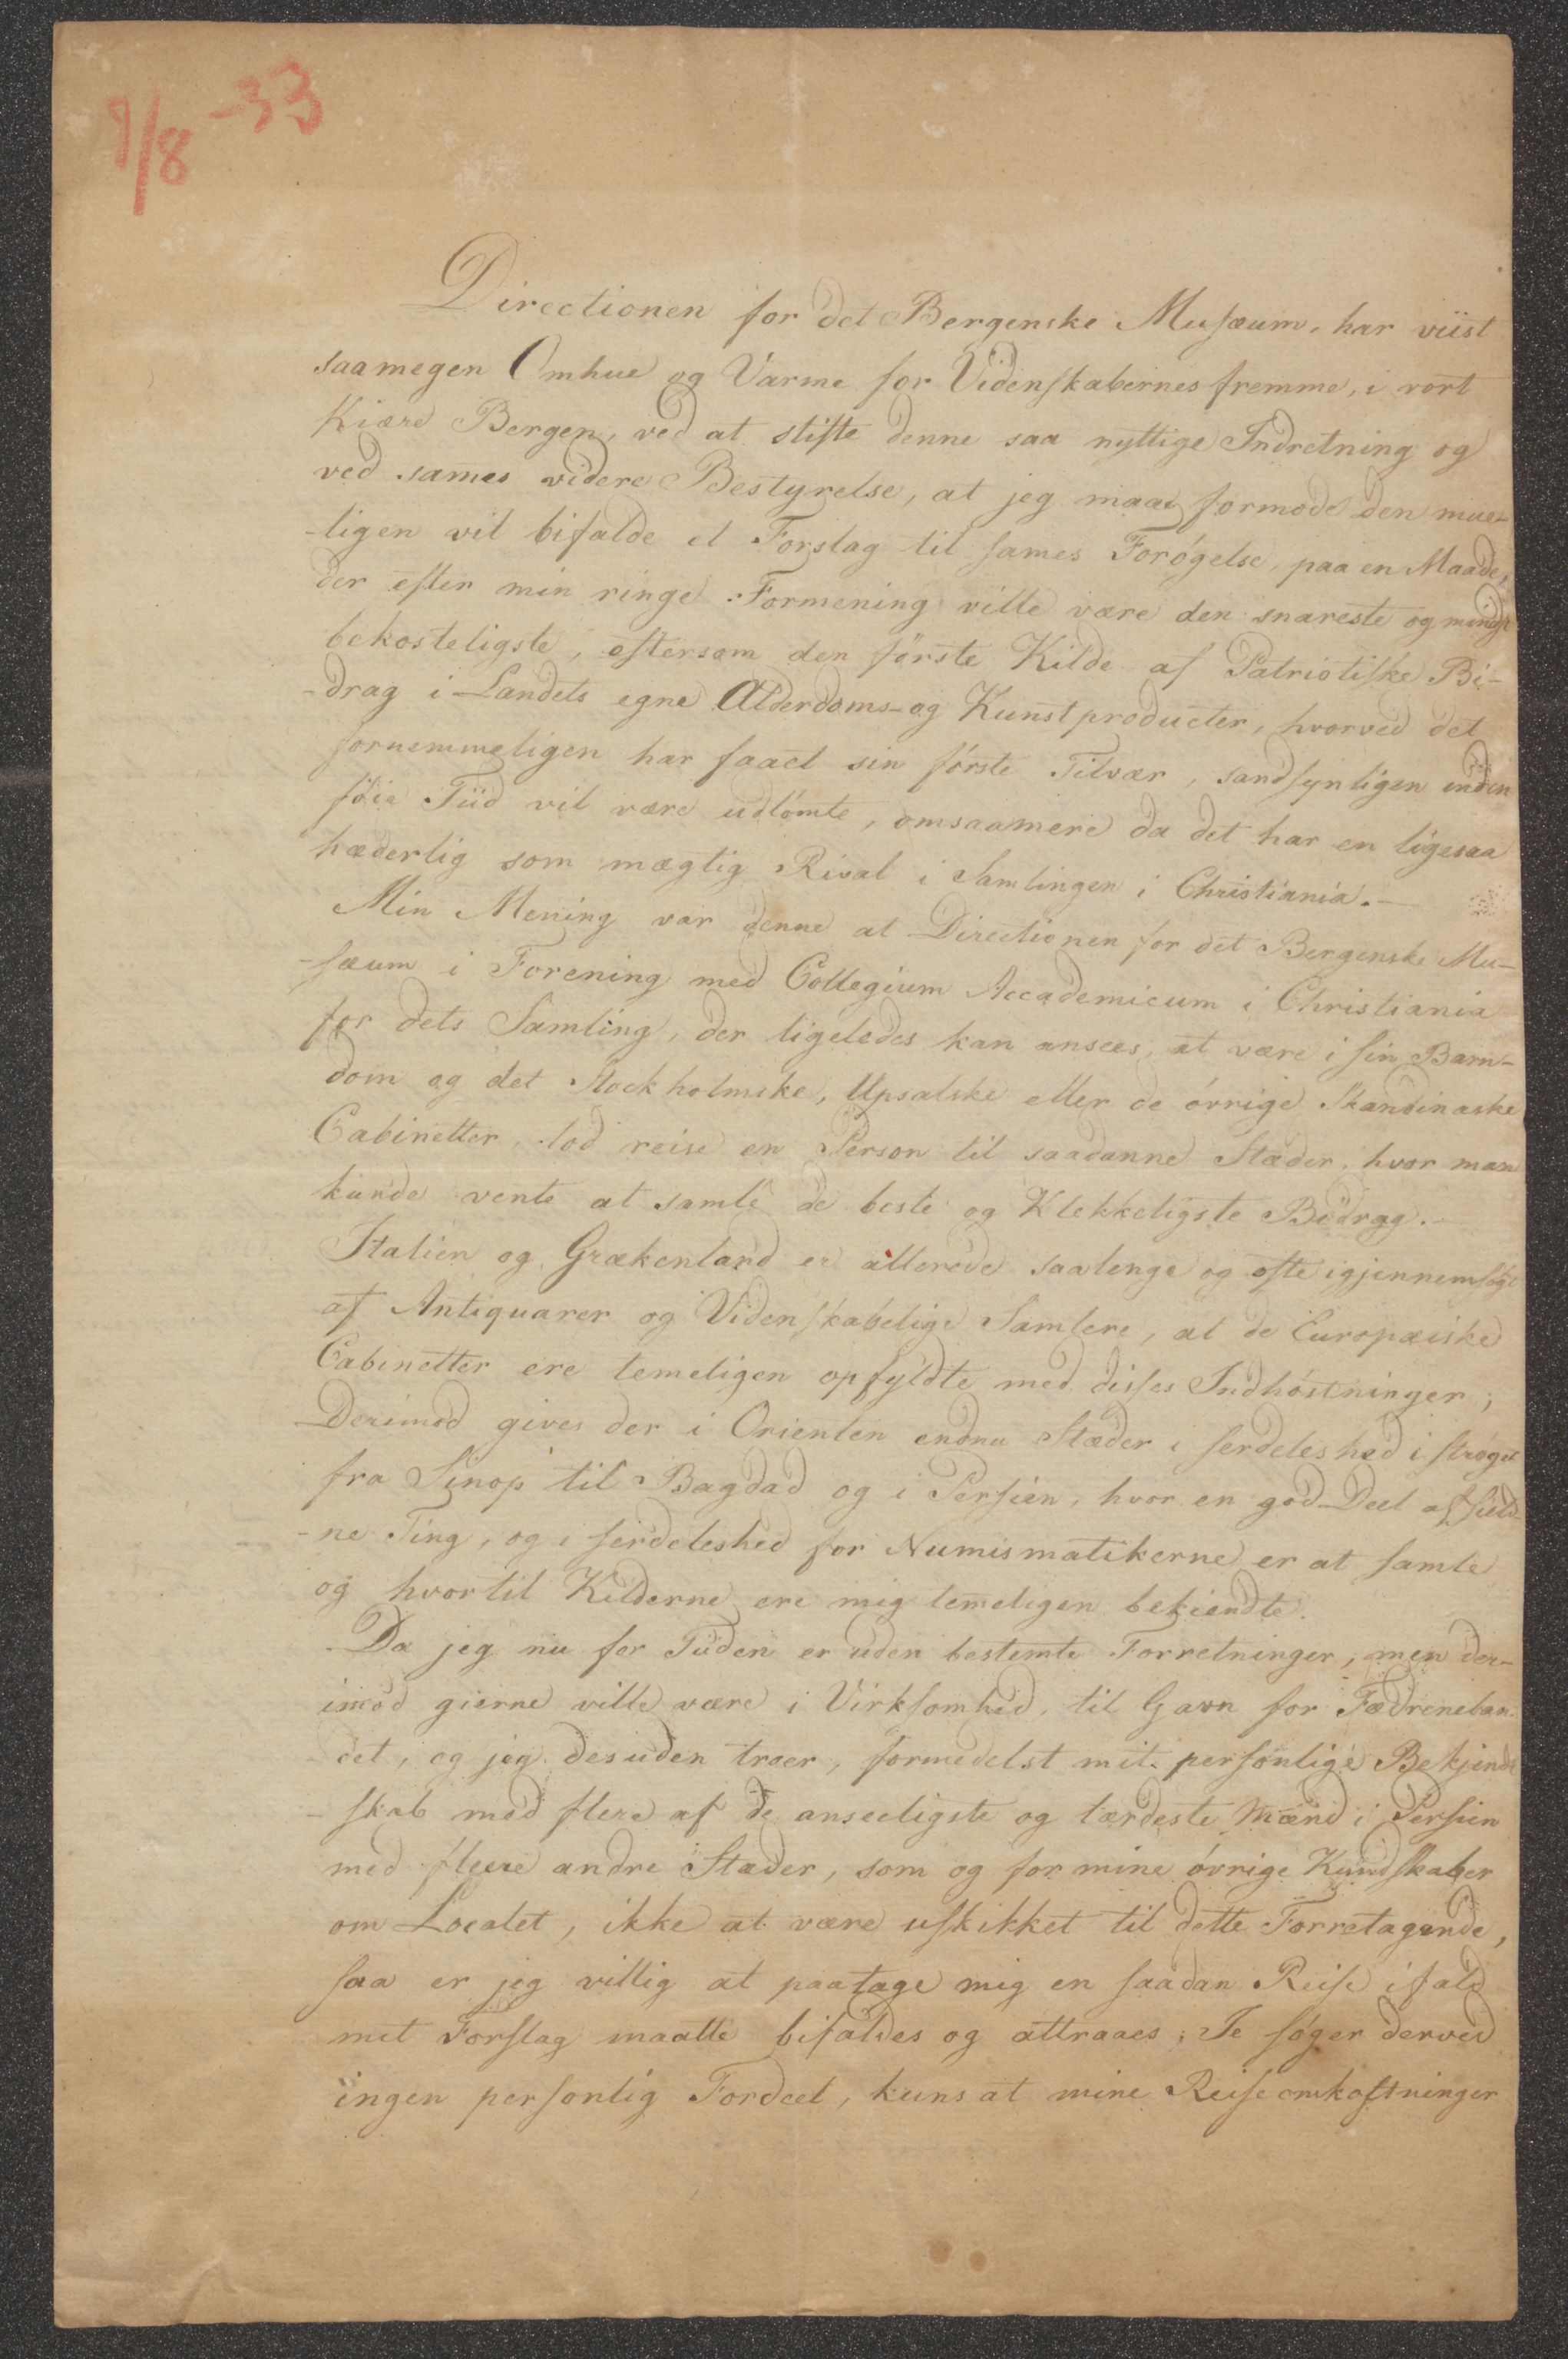 9/8 -33
Directionen for det Bergenske Musæum, har viist
saamegen Omhue og Varme for Videnskabernes fremme, i vort
Kiære Bergen, ved at stifte denne saa nyttige Indretning og
ved sames videre Bestyrelse, at jeg maae formode den mue-
-ligen vil bifalde et Forslag til sames Forøgelse, paa en Maade,
der efter min ringe Formening ville være den snareste og mindst
bekosteligste, eftersom den første Kilde af Patriotiske Bi-
-drag i Landets egne Alderdoms- og Kunstproducter, hvorved det
fornemmeligen har faaet sin første Tilvær, sandsynligen inden
føie Tiid vil være udtømte, omsaamere da det har en ligesaa
hæderlig som mægtig Rival i Samlingen i Christiania.-
Min Mening var denne at Directionen for det Bergenske Mu-
-sæum i Forening med Collegium Accademicum i Christiania
for dets Samling, der ligeledes kan ansees, at være i sin Barn-
dom og det Stockholmske, Upsalske eller de øvrige Skandinaske
Cabinetter, lod reise en Person til saadanne Stæder, hvor man
kunde vente at samle de beste og Klekkeligste Bidrag.-
Italien og Grækenland er allerede saalenge og ofte igjennemsøgt
af Antiquarer og Videnskabelige Samlere, at de Europæiske
Cabinetter ere temeligen opfyldte med disses Indhøstninger;
Derimod gives der i Orienten endnu Stæder i serdeleshed i strøget
fra Sinop til Bagdad og i Persien, hvor en god Deel af sield-
-ne Ting, og i serdeleshed for Numismatikerne er at samle
og hvortil Kilderne ere mig temeligen bekiendte.
Da jeg nu for Tiiden er uden bestemte Forretninger, men der-
imod gierne ville være i Virksomhed, til Gavn for Fædrenelan-
det, og jeg desuden troer, formedelst mit personlige Bekjendt
-skab med flere af de anseeligste og lærdeste Mænd i Persien
med fleere andre Stæder, som og for mine øvrige Kundskaber
om Localet, ikke at være uskikket til dette Forretagende,
saa er jeg villig at paatage mig en saadan Reise ifald
mit Forslag maatte bifaldes og attraaes; Je søger derved
ingen personlig Fordeel, kuns at mine Reiseomkostninger